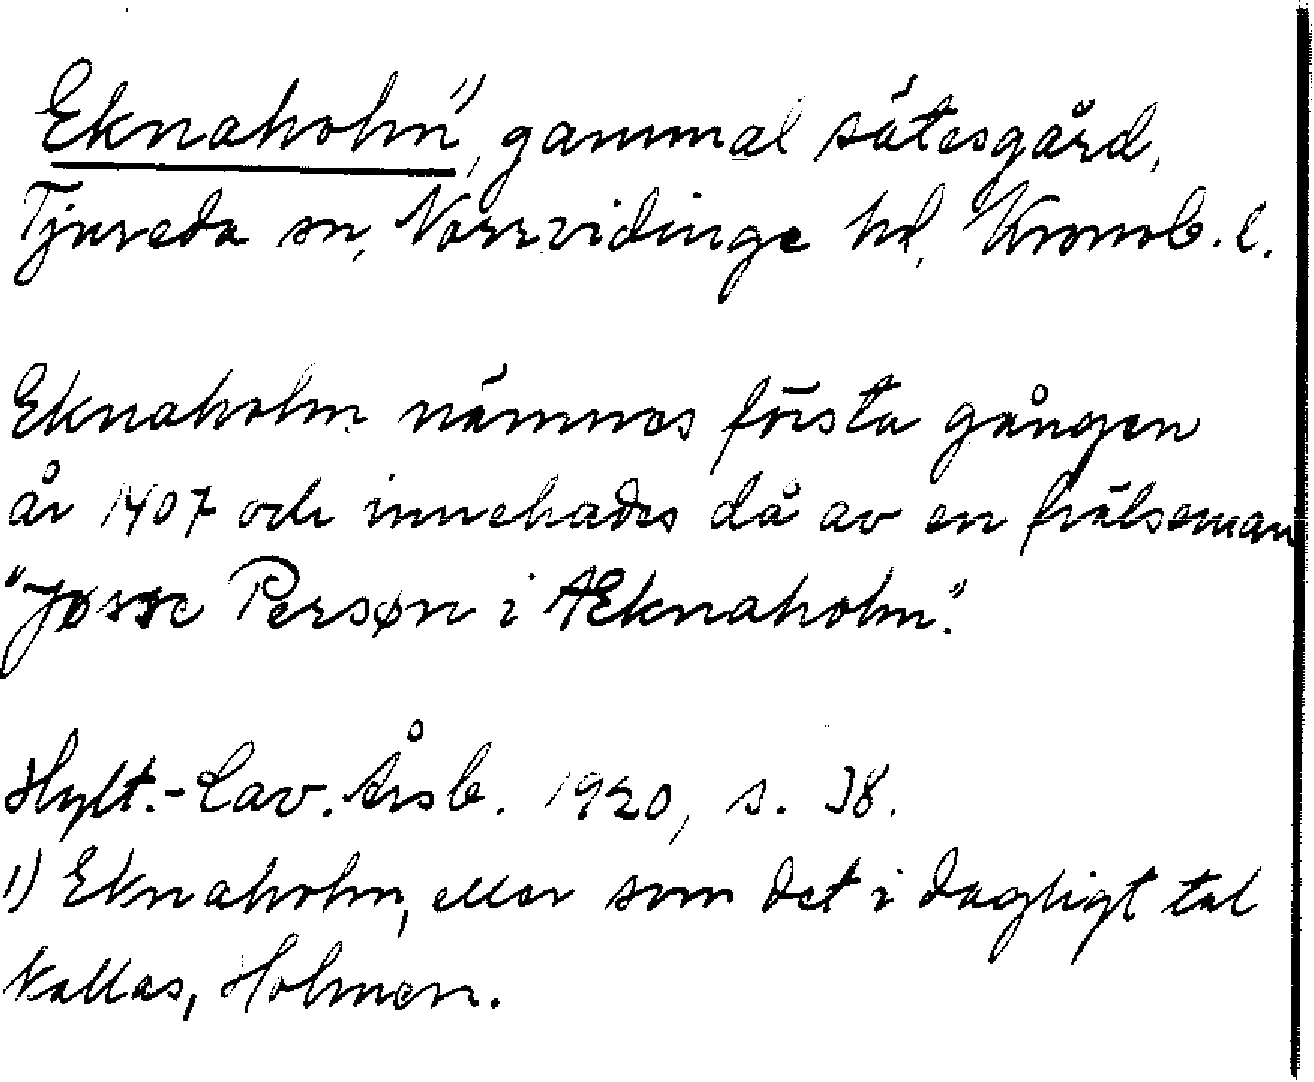 Eknaholm¹⁾, gammal sätesgård,
Tjureda sn, Norrvidinge hd, Kronob. l.
Eknaholm nämnes första gången
år 1407 och innehades då av en frälseman
"Jøsse Persøn i Æknaholm".
Hylt.-Cav. Årsb. 1920, s. 38.
1) Eknaholm, eller som det i dagligt tal
kallas, Holmen.